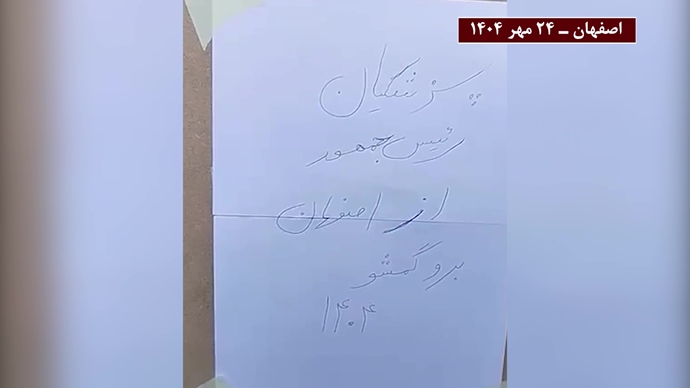 اصفهان ــ ۲۴ مهر ۱۴۰۴
پزشکیان
رئیس جمهور
از اصفهان
برو گمشو
۱۴۰۴